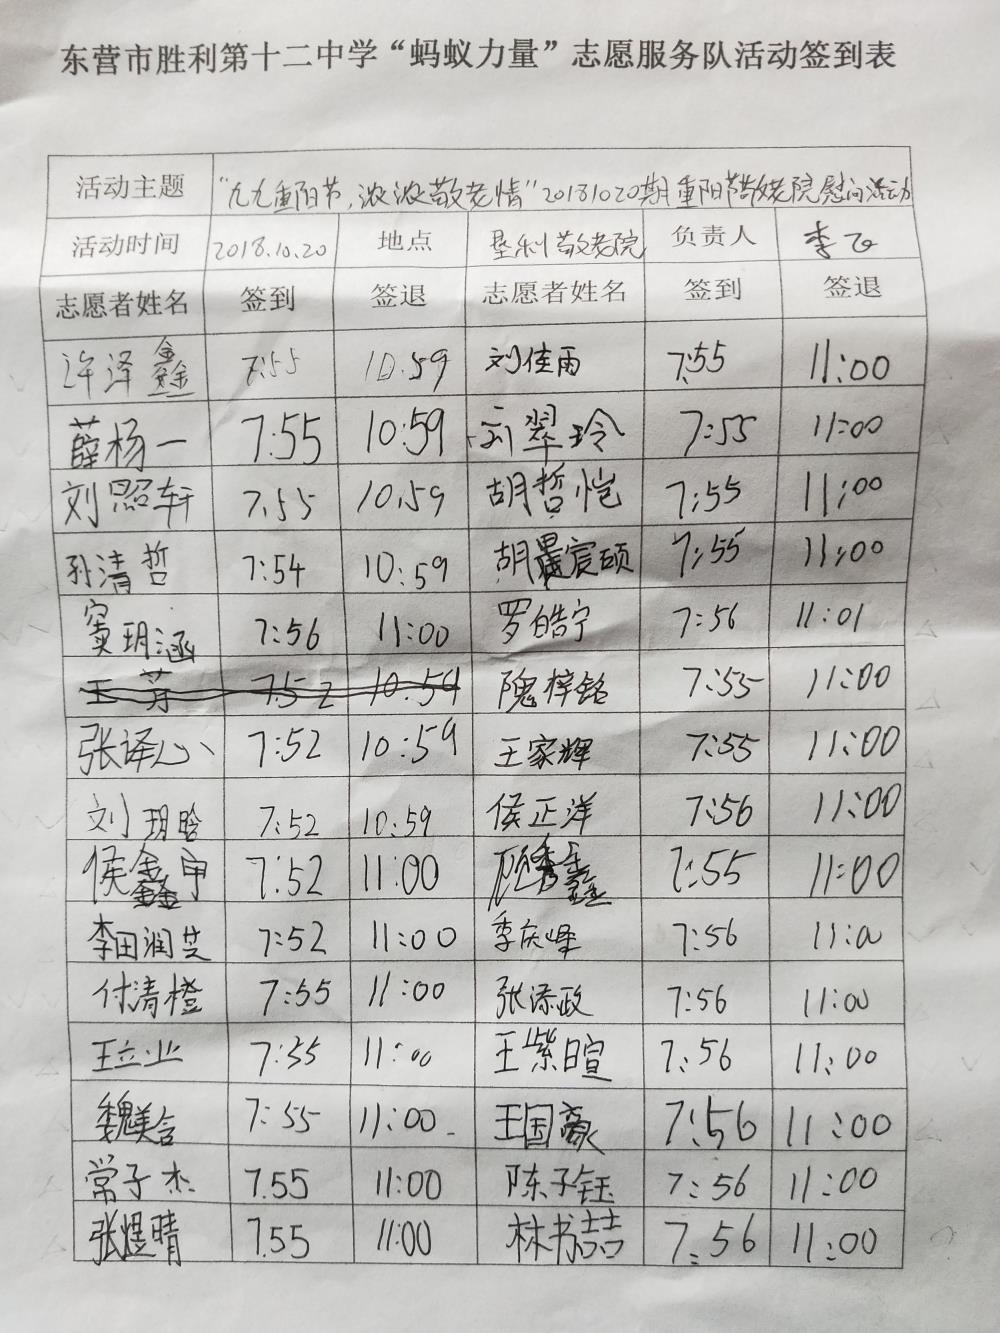 东营市胜利第十二中学“蚂蚁力量”志愿服务队活动签到表
活动主题 “九九重阳节，浓浓敬老情”20181020期重阳节敬老院慰问活动
活动时间 2018.10.20 地点 垦利敬老院 负责人 李飞
志愿者姓名 签到 签退 志愿者姓名 签到 签退
许泽鑫 7:55 10.59 刘佳雨 7:55 11:00
薛杨一 7:55 10:59 刘翠玲 7:55 11:00
刘照轩 7.55 10.59 胡哲恺 7:55 11:00
孙清哲 7:54 10:59 胡宸硕 7:55 11:00
窦玥涵 7:56 11:00 罗皓宁 7:56 11:01
王芳 7.52 10:59 隗梓铭 7:55 11:00
张译心 7:52 10:59 王家辉 7:55 11:00
刘玥晗 7:52 10:59 侯正洋 7:56 11:00
侯鑫甲 7:52 11:00 顾秀鑫 7:55 11:00
李田润芝 7:52 11:00 李庆峰 7:56 11:00
付清橙 7:55 11:00 张添政 7:56 11:00
王立业 7:55 11:00 王紫暄 7:56 11:00
魏美含 7:55 11:00 王国豪 7:56 11:00
常子杰 7.55 11:00 陈子钰 7:56 11:00
张煜晴 7.55 11:00 林书喆 7:56 11:00